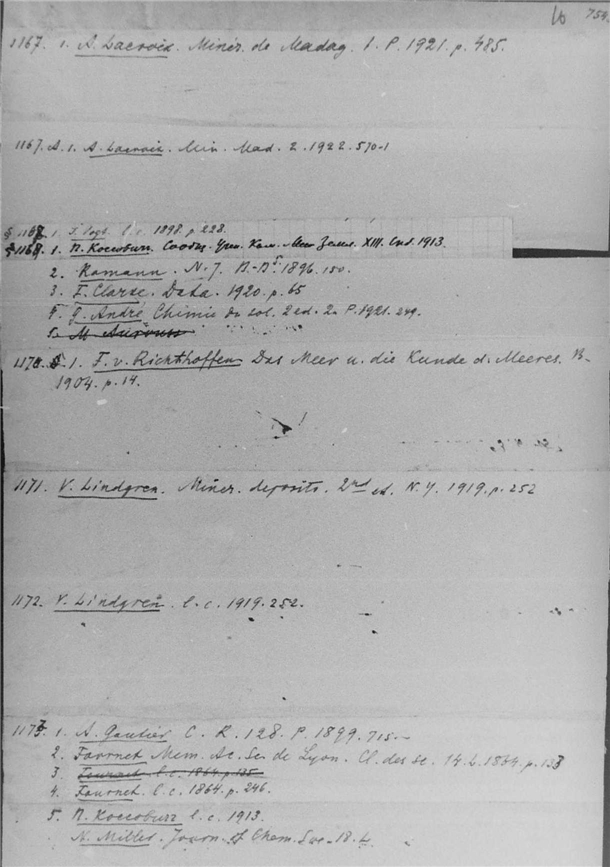 10 759
1167. 1. A. Lacroix. Minér. de Madag. 1. P. 1921. p. 485.
1167. A. 1. A. Lacroix. Min. Mad. 2. 1922. 570-1
§ 1168. 1. J. Vogt. l. c. 1898. p. 228.
§ 1168. 1. П. Коссович. XIII. Спб. 1913.
2. Ramann. N. J. B.-B. 1896. 150.
3. F. Clarke. Data. 1920. p. 65
4. G. André Chimie du sol. 2 ed. 2. P. 1921. 249.
5. M
1170. 1. F. v. Richthoffen Das Meer u. die Kunde d. Meeres. B.
1904. p. 14.
1171. V. Lindgren. Miner. deposits. 2nd ed. N. Y. 1919. p. 252
1172. V. Lindgren. l. c. 1919. 252.
1173. 1. A. Gautier C. R. 128. P. 1899. 715.
2. Fournet Mem. Ac. Sc. de Lyon. Cl. des sc. 14. L. 1864. p. 133
3. Fournet l. c. 1864. p. 135
4. Fournet. l. c. 1864. p. 246.
5. П. Коссович l. c. 1913.
N. Miller. Journ. of Chem. Soc. 18.